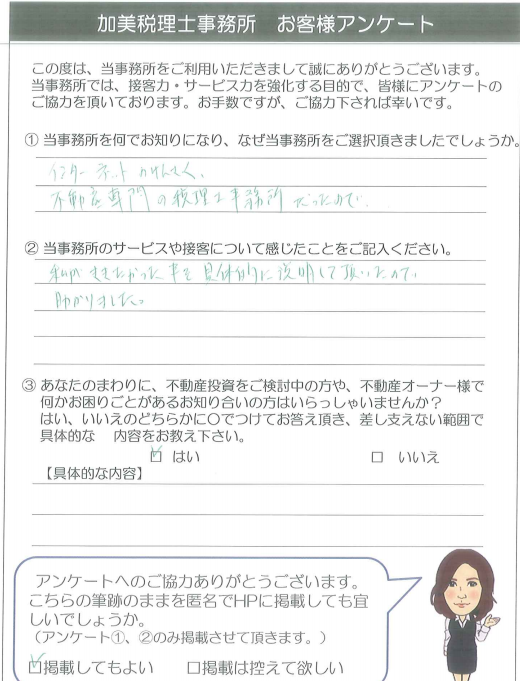 加美税理士事務所　お客様アンケート
この度は、当事務所をご利用いただきまして誠にありがとうございます。
当事務所では、接客力・サービス力を強化する目的で、皆様にアンケートの
ご協力を頂いております。お手数ですが、ご協力下されば幸いです。
① 当事務所を何でお知りになり、なぜ当事務所をご選択頂きましたでしょうか。
インターネットけんさく、
不動産専門の税理士事務所だったので.
② 当事務所のサービスや接客について感じたことをご記入ください。
私がききたかった事を具体的に説明して頂いたので、
助かりました。
③ あなたのまわりに、不動産投資をご検討中の方や、不動産オーナー様で
何かお困りごとがあるお知り合いの方はいらっしゃいませんか？
はい、いいえのどちらかに〇でつけてお答え頂き、差し支えない範囲で
具体的な　内容をお教え下さい。
☑ はい　□ いいえ
【具体的な内容】
アンケートへのご協力ありがとうございます。
こちらの筆跡のままを匿名でHPに掲載しても宜
しいでしょうか。
（アンケート①、②のみ掲載させて頂きます。）
☑掲載してもよい　□掲載は控えて欲しい